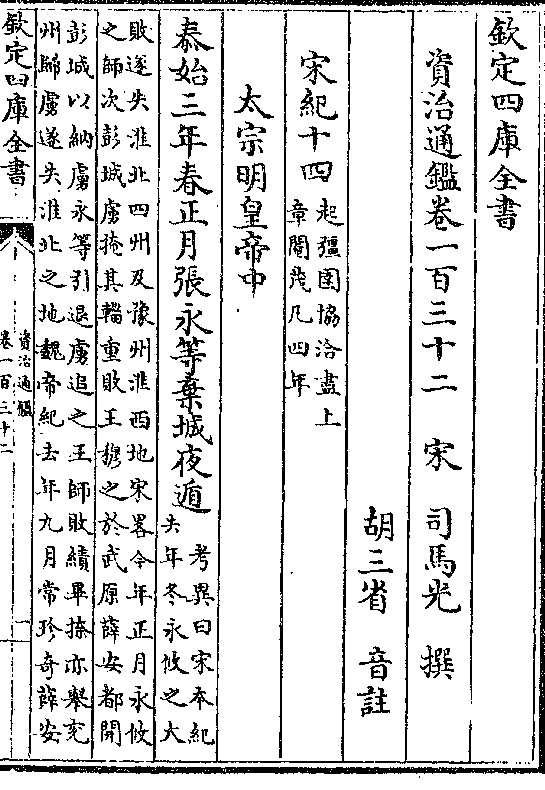 欽定四庫全書
資治通鑑卷一百三十二 宋 司馬光 撰
胡三省 音註
宋紀十四
起彊圉協洽盡上
章閹茂凡四年
太宗明皇帝中
泰始三年春正月張永等棄城夜遁
考異曰宋本紀
去年冬永攸之大
敗遂失淮北四州及豫州淮西地宋畧今年正月永攸
之師次彭城虜掩其輜重敗王穆之於武原薛安都開
彭城以納虜永等引退虜追之王師敗績畢捺亦舉兖
州歸虜遂失淮北之地魏帝紀去年九月常珍竒薛安
欽定四庫全書
資治通鑑
卷一百三十二
一